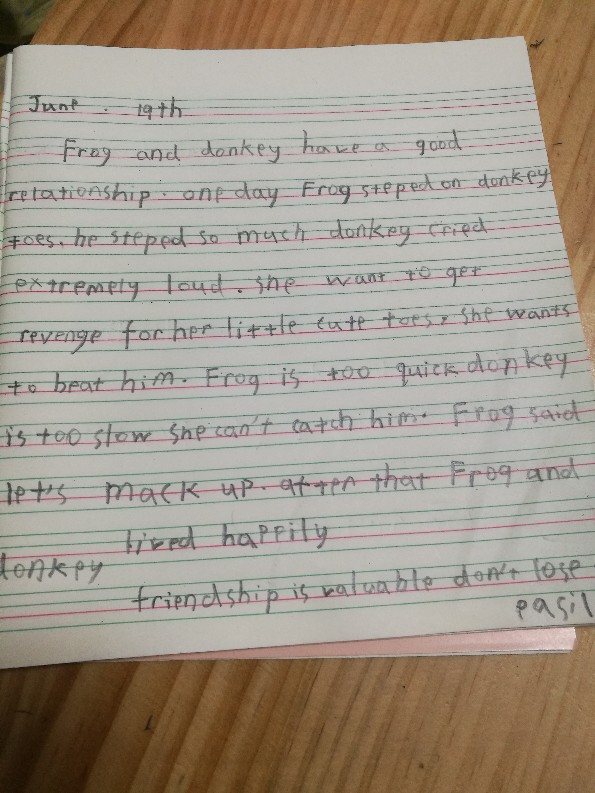 June. 19th
Frog and donkey have a good
relationship. one day Frog steped on donkey
toes. he steped so much donkey cried
extremely loud. she want to get
revenge for her little cute toes, she wants
to beat him. Frog is too quick donkey
is too slow she can't catch him. Frog said
let's mack up. atten that Frog and
donkey lived happily
friendship is valuable don't lose
easil